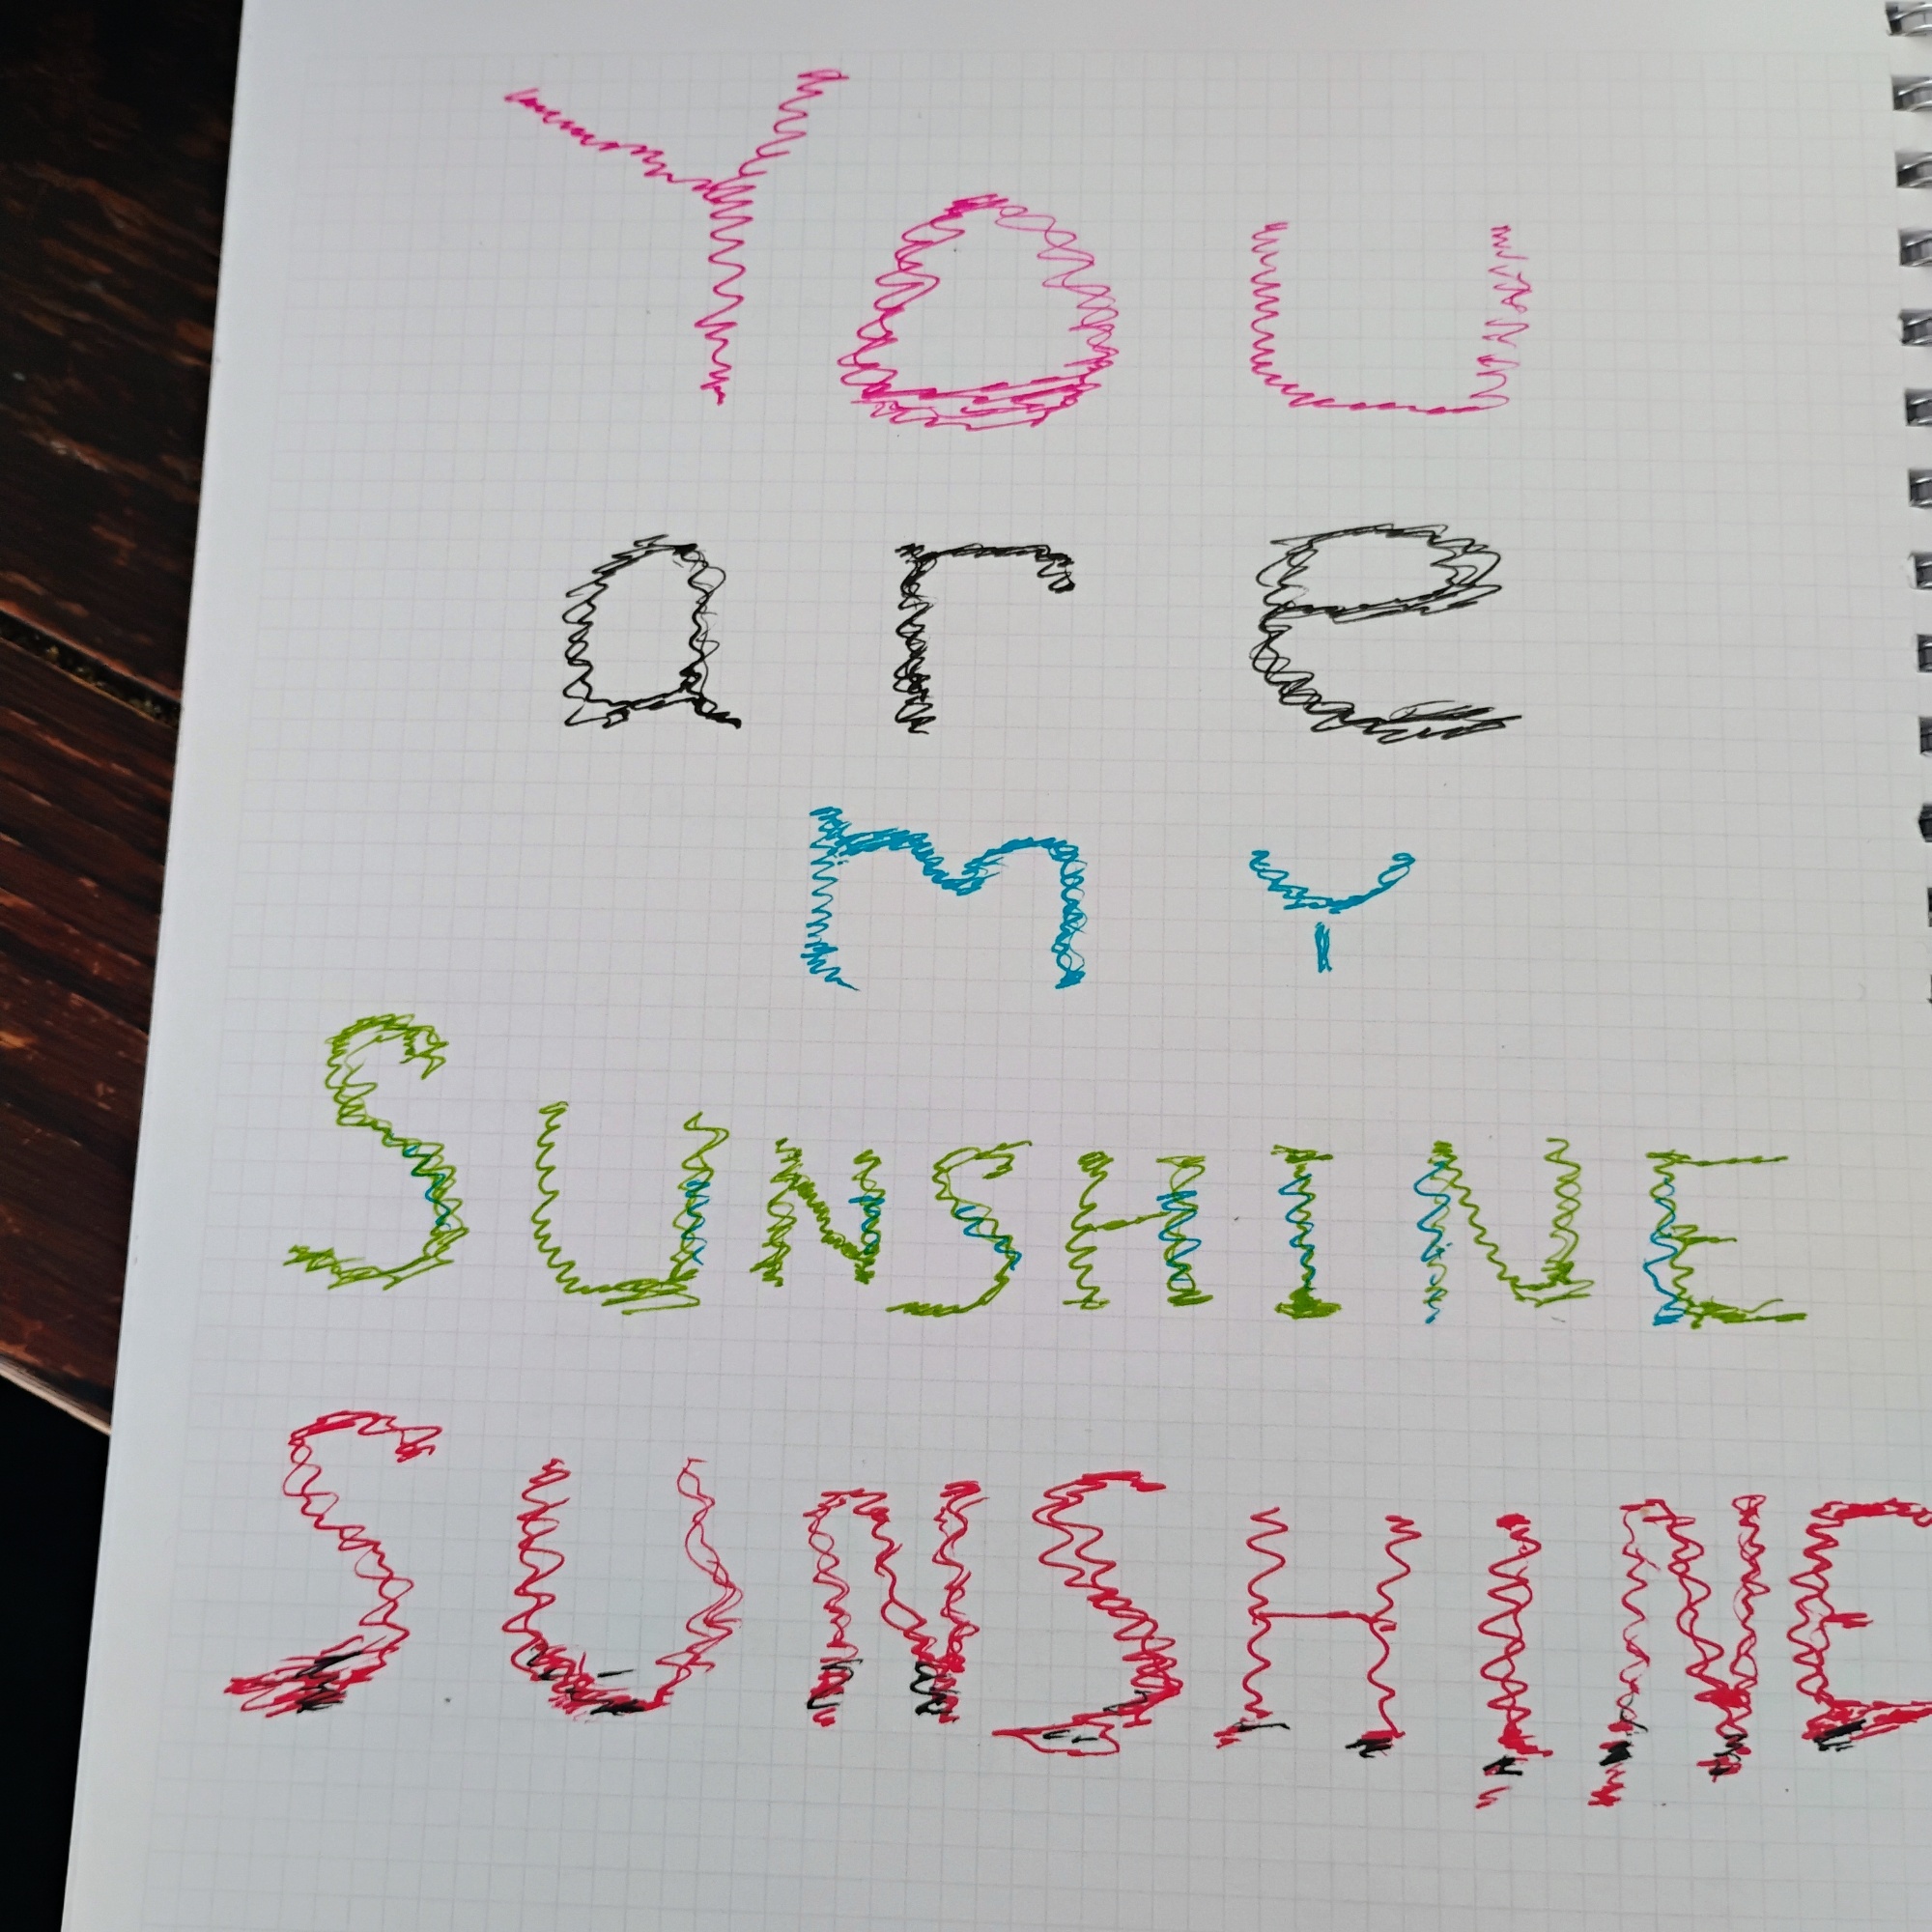 You
are
my
SUNSHINE
SUNSHINE